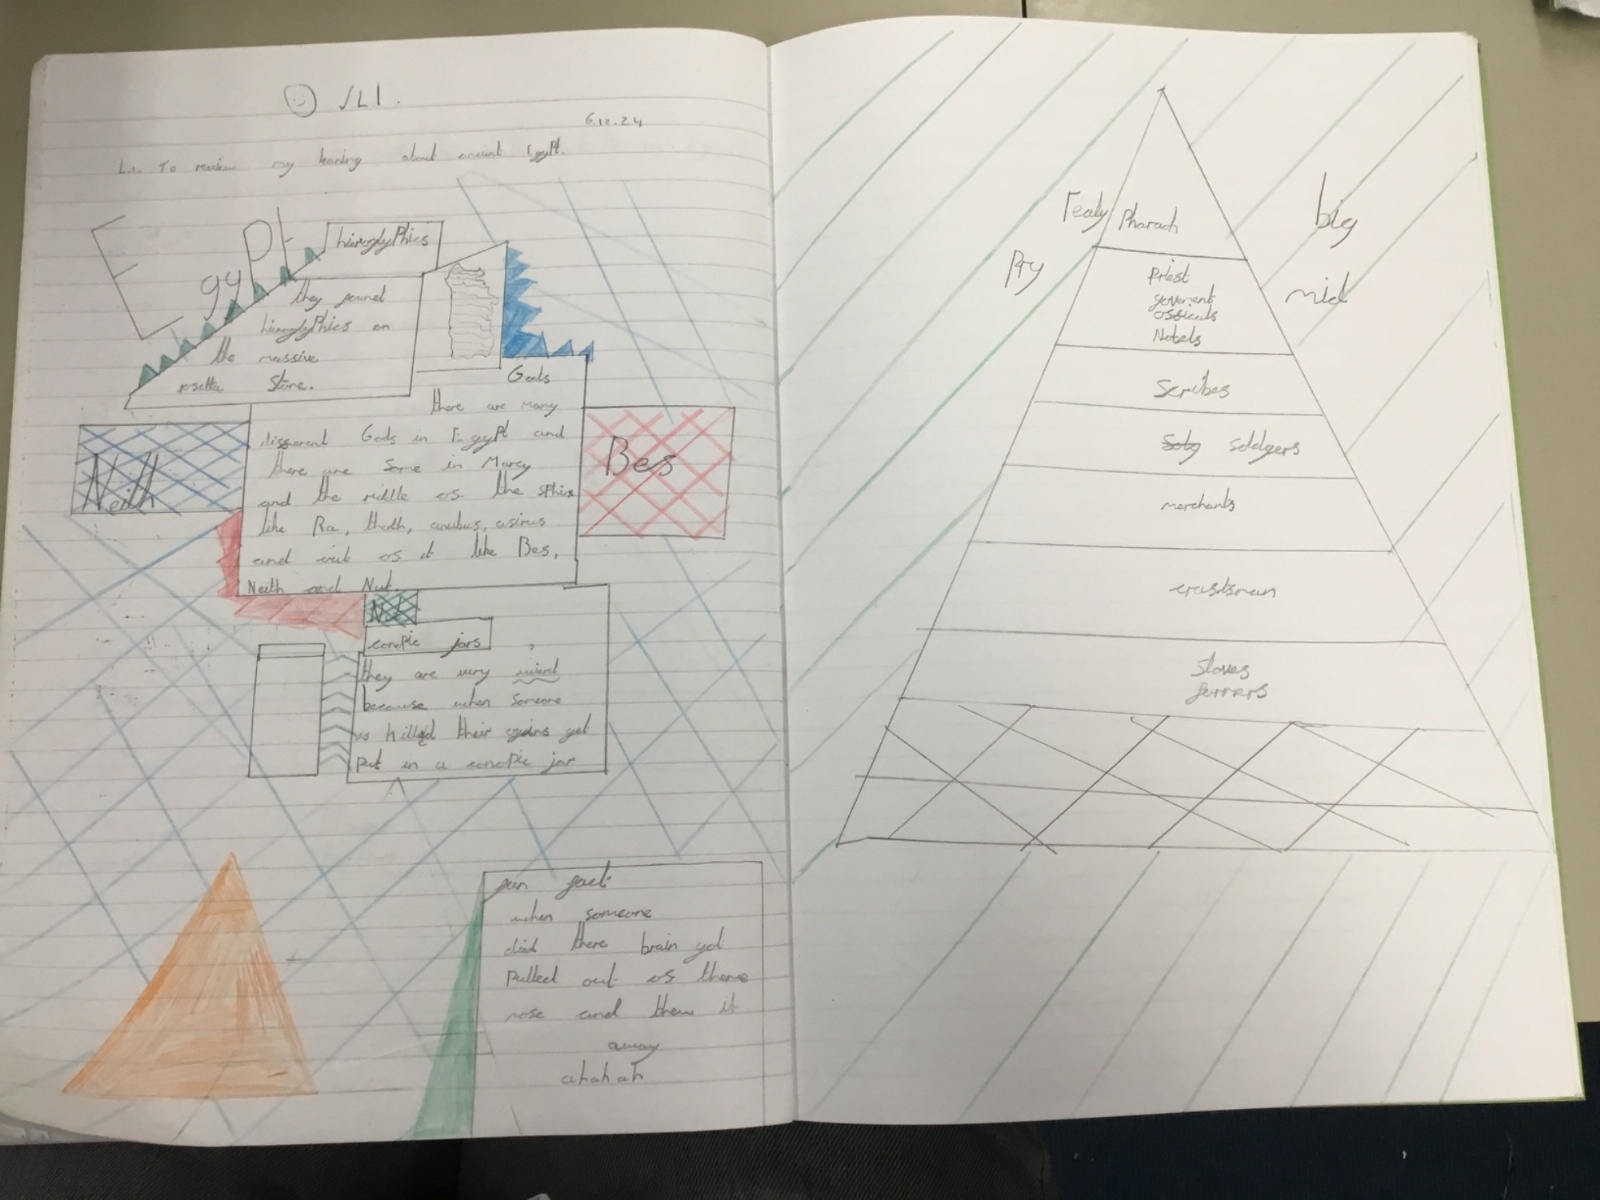 √LI.
6.12.24
L.I. To review my learing about anciant EgyPt.
EgyPt
hieroglyPhics
they found
hieroglyPhics on
the massive
rosetta Stone.
Gods
there are many
different Gods in EgyPt and
there are Some in
and the middle of the sphix
like Ra, thoth, anubus, osirus
and out of it like Bes,
Neith and Nut
Neith
Bes
Nut
conopic jars
they are very weird
because when Someone
is killed their organs get
Put in a conopic jar
fun fact
when someone
died there brain got
Pulled out of there
nose and thew it
away
ahahah
Pharaoh
big
Priest
goverment
officals
Nobels
mid
Scribes
soldgers
merchants
craftsman
Slaves
farmers